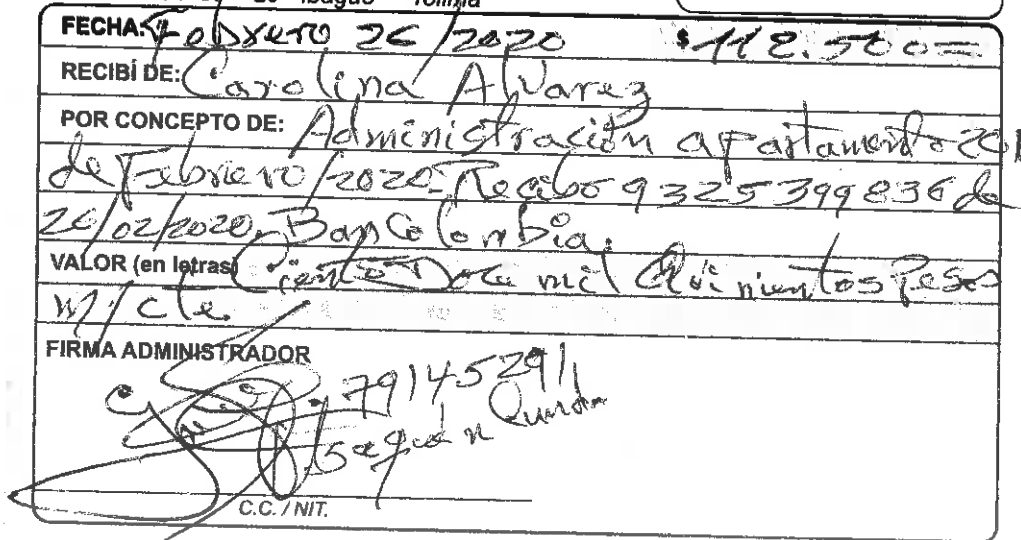 Ibagué Tolima
FECHA: Febrero 26/2020 $112.500=
RECIBÍ DE: Carolina Alvarez
POR CONCEPTO DE: Administración apartamento 201
de Febrero/2020- Recibo 9325399836 de
26/02/2020. Bancolombia.
VALOR (en letras) Ciento Doce mil Quinientos Pesos
M/cte.
FIRMA ADMINISTRADOR
79145291
C.C. / NIT.